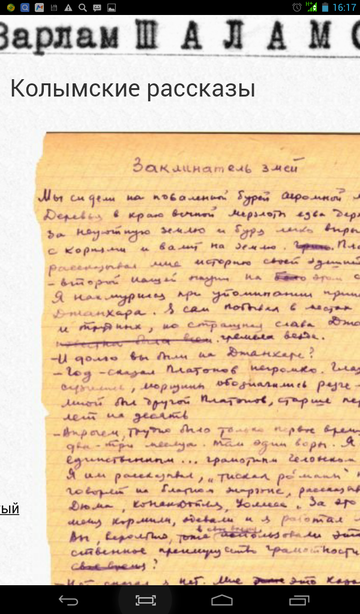 16:17
Варлам ШАЛАМО
Колымские рассказы
Заклинатель змей
Мы сидели на поваленной бурей огромной
Деревья в краю вечной мерзлоты едва держ
за неуютную землю и буря легко вырыв
с корнями и валит на землю. Пла
рассказывал мне историю своей здешней
- второй нашей жизни на этом
Я нахмурился при упоминании приис
Джанхара. Я сам побывал в местах
и трудных, но страшная слава Джа
гремела везде.
- И долго вы были на Джанхаре?
- Год - сказал Платонов негромко. Глаз
сузились, морщины обозначились резче -
мной был другой Платонов, старше пер
лет на десять
- Впрочем, трудно было только первое врем
два-три месяца. Там одни воры. Я
единственным ... грамотным человеком
Я им рассказывал, „тискал ро́маны"
говорят на блатном жаргоне, рассказыва
Дюма, Конан-Дойля, Уоллеса. За это
меня кормили, одевали и я работал
Вы, вероятно, тоже использовали это
ственное преимущество грамотности
свое время?
- Нет сказал я нет. Мне это каза
ый